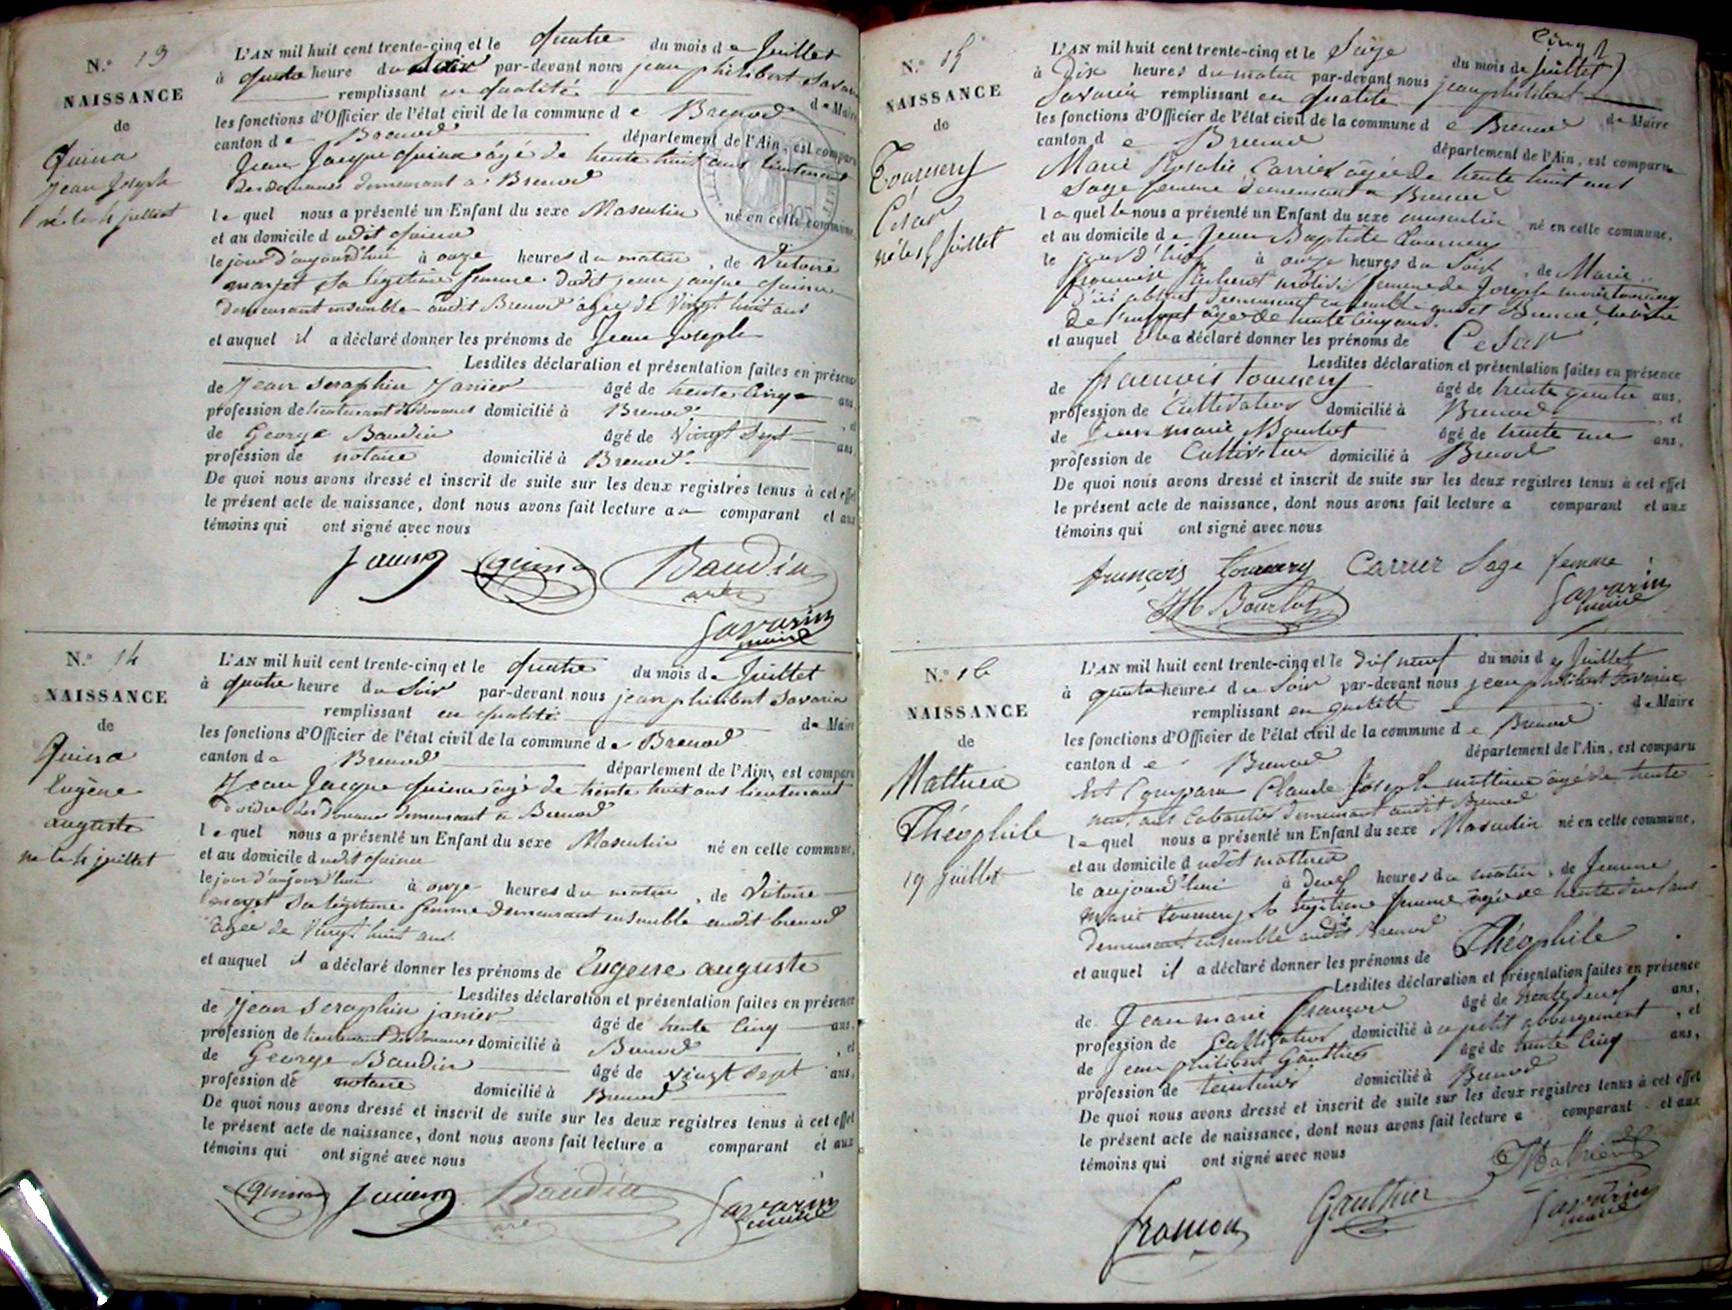 N.° 13
NAISSANCE
de
Quina
Jean Joseph
né le 4 juillet
L'AN mil huit cent trente-cinq et le quatre du mois de Juillet
à quatre heure du soir par-devant nous jean philibert Savarin
remplissant en qualité de Maire
les fonctions d'Officier de l'état civil de la commune de Brenod
canton de Brenod département de l'Ain, est comparu
Jean Jacque Quina âgé de trente huit ans lieutenant
des douanes demeurant à Brenod
lequel nous a présenté un Enfant du sexe Masculin né en cette commune,
et au domicile dudit Quina
le jour d'aujourd'hui à onze heures du matin, de Victoire
marjet sa légitime femme dudit jean jacque quina
demeurant ensemble audit Brenod âgée de Vingt huit ans
et auquel il a déclaré donner les prénoms de Jean Joseph
Lesdites déclaration et présentation faites en présence
de Jean Seraphin Janier âgé de trente cinq ans,
profession de lieutenant des Douanes domicilié à Brenod, et
de George Baudin âgé de Vingt Sept ans
profession de notaire domicilié à Brenod.
De quoi nous avons dressé et inscrit de suite sur les deux registres tenus à cet effet
le présent acte de naissance, dont nous avons fait lecture au comparant et aux
témoins qui ont signé avec nous
Janier Quina Baudin
Savarin
maire
N.° 14
NAISSANCE
de
Quina
Eugène
auguste
né le 4 juillet
L'AN mil huit cent trente-cinq et le quatre du mois de Juillet
à quatre heure du Soir par-devant nous jean philibert Savarin
remplissant en qualité de Maire
les fonctions d'Officier de l'état civil de la commune de Brenod
canton de Brenod département de l'Ain, est comparu
Jean Jacque Quina âgé de trente huit ans lieutenant
des Douanes demeurant à Brenod
lequel nous a présenté un Enfant du sexe Masculin né en cette commune,
et au domicile dudit Quina
le jour d'aujourd'hui à onze heures du matin, de Victoire
marjet sa légitime femme demeurant ensemble audit brenod
âgée de Vingt huit ans
et auquel il a déclaré donner les prénoms de Eugene auguste
Lesdites déclaration et présentation faites en présence
de Jean Seraphin janier âgé de trente Cinq ans,
profession de lieutenant des Douanes domicilié à Brenod, et
de George Baudin âgé de vingt Sept ans,
profession de notaire domicilié à Brenod
De quoi nous avons dressé et inscrit de suite sur les deux registres tenus à cet effet
le présent acte de naissance, dont nous avons fait lecture a comparant et aux
témoins qui ont signé avec nous
Quina Janier Baudin Savarin
maire
N.° 15
NAISSANCE
de
Tournery
César
né le 15 Juillet
L'AN mil huit cent trente-cinq et le Saije du mois de Juillet
à Dix heures du matin par-devant nous jean philibert
Savarin remplissant en qualité de Maire
les fonctions d'Officier de l'état civil de la commune de Brenod
canton de Brenod département de l'Ain, est comparu
Marie Rosalie Carrier âgée de trente huit ans
Sage femme demeurant à Brenod
laquelle nous a présenté un Enfant du sexe masculin né en cette commune,
et au domicile de Jean Baptiste Tournery
le jour d'hier à onze heures du Soir, de Marie
femme de Joseph
demeurant ensemble audit Brenod
de l'enfant âgée de trente cinq ans.
et auquel elle a déclaré donner les prénoms de César
Lesdites déclaration et présentation faites en présence
de françois tournery âgé de trente quatre ans,
profession de Cultivateur domicilié à Brenod, et
de Jean marie Bourlot âgé de trente un ans,
profession de Cultivateur domicilié à Brenod
De quoi nous avons dressé et inscrit de suite sur les deux registres tenus à cet effet
le présent acte de naissance, dont nous avons fait lecture a comparant et aux
témoins qui ont signé avec nous
françois tournery Carrier Sage femme
JM Bourlot Savarin
maire
N.° 16
NAISSANCE
de
Mathieu
Théophile
19 juillet
L'AN mil huit cent trente-cinq et le dix neuf du mois de Juillet
à quatre heures du Soir par-devant nous jean philibert Savarin
remplissant en qualité de Maire
les fonctions d'Officier de l'état civil de la commune de Brenod
canton de Brenod département de l'Ain, est comparu
Est Comparu Claude Joseph mathieu âgé de trente
neuf ans Cabaretier demeurant audit Brenod
lequel nous a présenté un Enfant du sexe Masculin né en cette commune,
et au domicile dudit mathieu
le aujourd'hui à neuf heures du matin, de Jeanne
marie tournery sa légitime femme âgée de trente neuf ans
demeurant ensemble audit Brenod
et auquel il a déclaré donner les prénoms de Théophile
Lesdites déclaration et présentation faites en présence
de Jean marie françon âgé de trente neuf ans,
profession de Cultivateur domicilié à petit abbergement, et
de Jean philibert Gauthier âgé de trente Cinq ans,
profession de teinturier domicilié à Brenod
De quoi nous avons dressé et inscrit de suite sur les deux registres tenus à cet effet
le présent acte de naissance, dont nous avons fait lecture a comparant et aux
témoins qui ont signé avec nous
Mathieu
françon Gauthier Savarin
maire